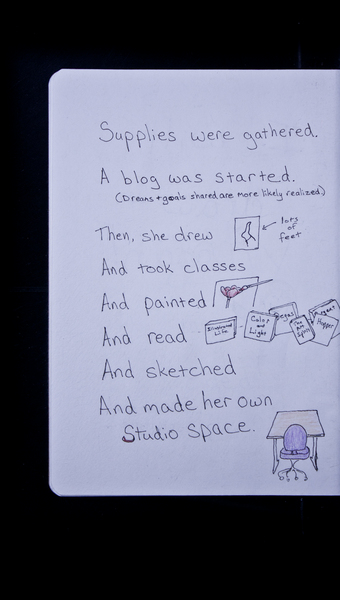 Supplies were gathered.
A blog was started.
(Dreams + goals shared are more likely realized)
Then, she drew
lots
of
feet
And took classes
And painted
And read
Illustrated
Life
Color
and
Light
Degas
The
Art
Spirit
Sargent
Hopper
And sketched
And made her own
Studio space.